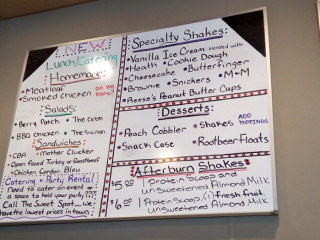 NEW
Lunch/Catering
Homemade
• Meatloaf
• Smoked chicken on the bone
Salads:
• Berry Patch • The Cobb
• BBQ Chicken • The Sicilian
Sandwiches:
• CBA • Mother Clucker
• Open Faced Turkey or Roastbeef
• Chicken Cordon Bleu
Catering - Party Rental
need to cater an event or
a space to hold your party???
Call The Sweet Spot, we
have the lowest prices in town
Specialty Shakes:
• Vanilla Ice Cream blended with
• Heath • Cookie Dough
• Cheesecake • Butterfinger
• Brownie • Snickers • M•M
• Reese's Peanut Butter Cups
Desserts:
• Peach Cobbler • Shakes ADD TOPPINGS
• Snack Case • Rootbeer Floats
Afterburn Shakes
$5.00 1 Protein Scoop and
unsweetened Almond Milk
$6.00 1 Protein Scoop, 1 fresh fruit
unsweetened Almond Milk